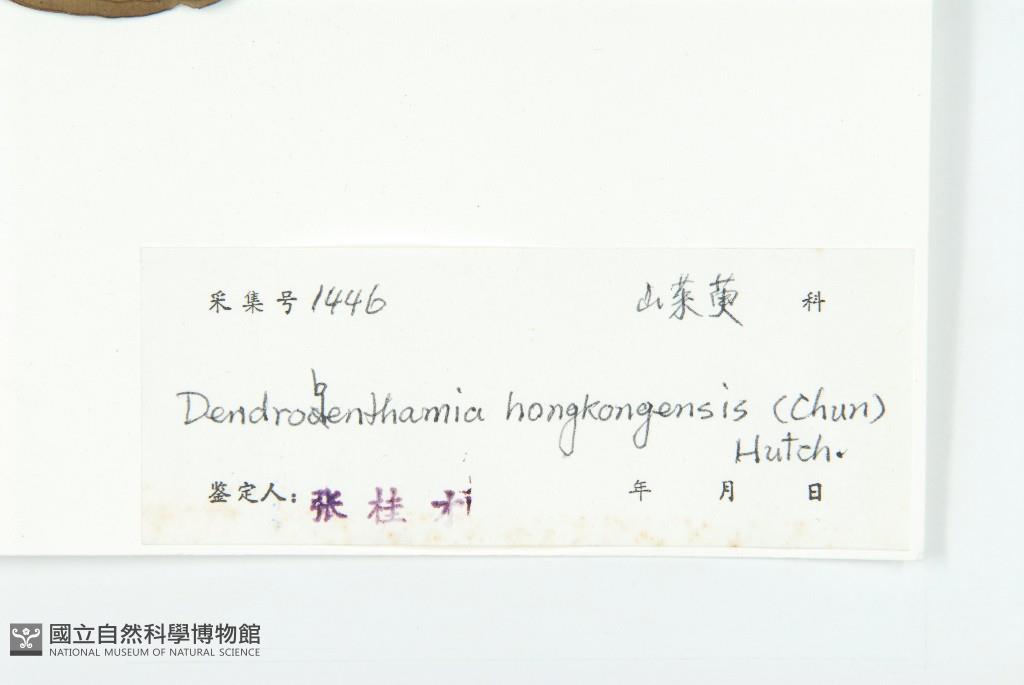 采集号 1446 山茱萸 科
Dendrobenthamia hongkongensis (Chun)
Hutch.
鉴定人：张桂 年 月 日
國立自然科學博物館
NATIONAL MUSEUM OF NATURAL SCIENCE